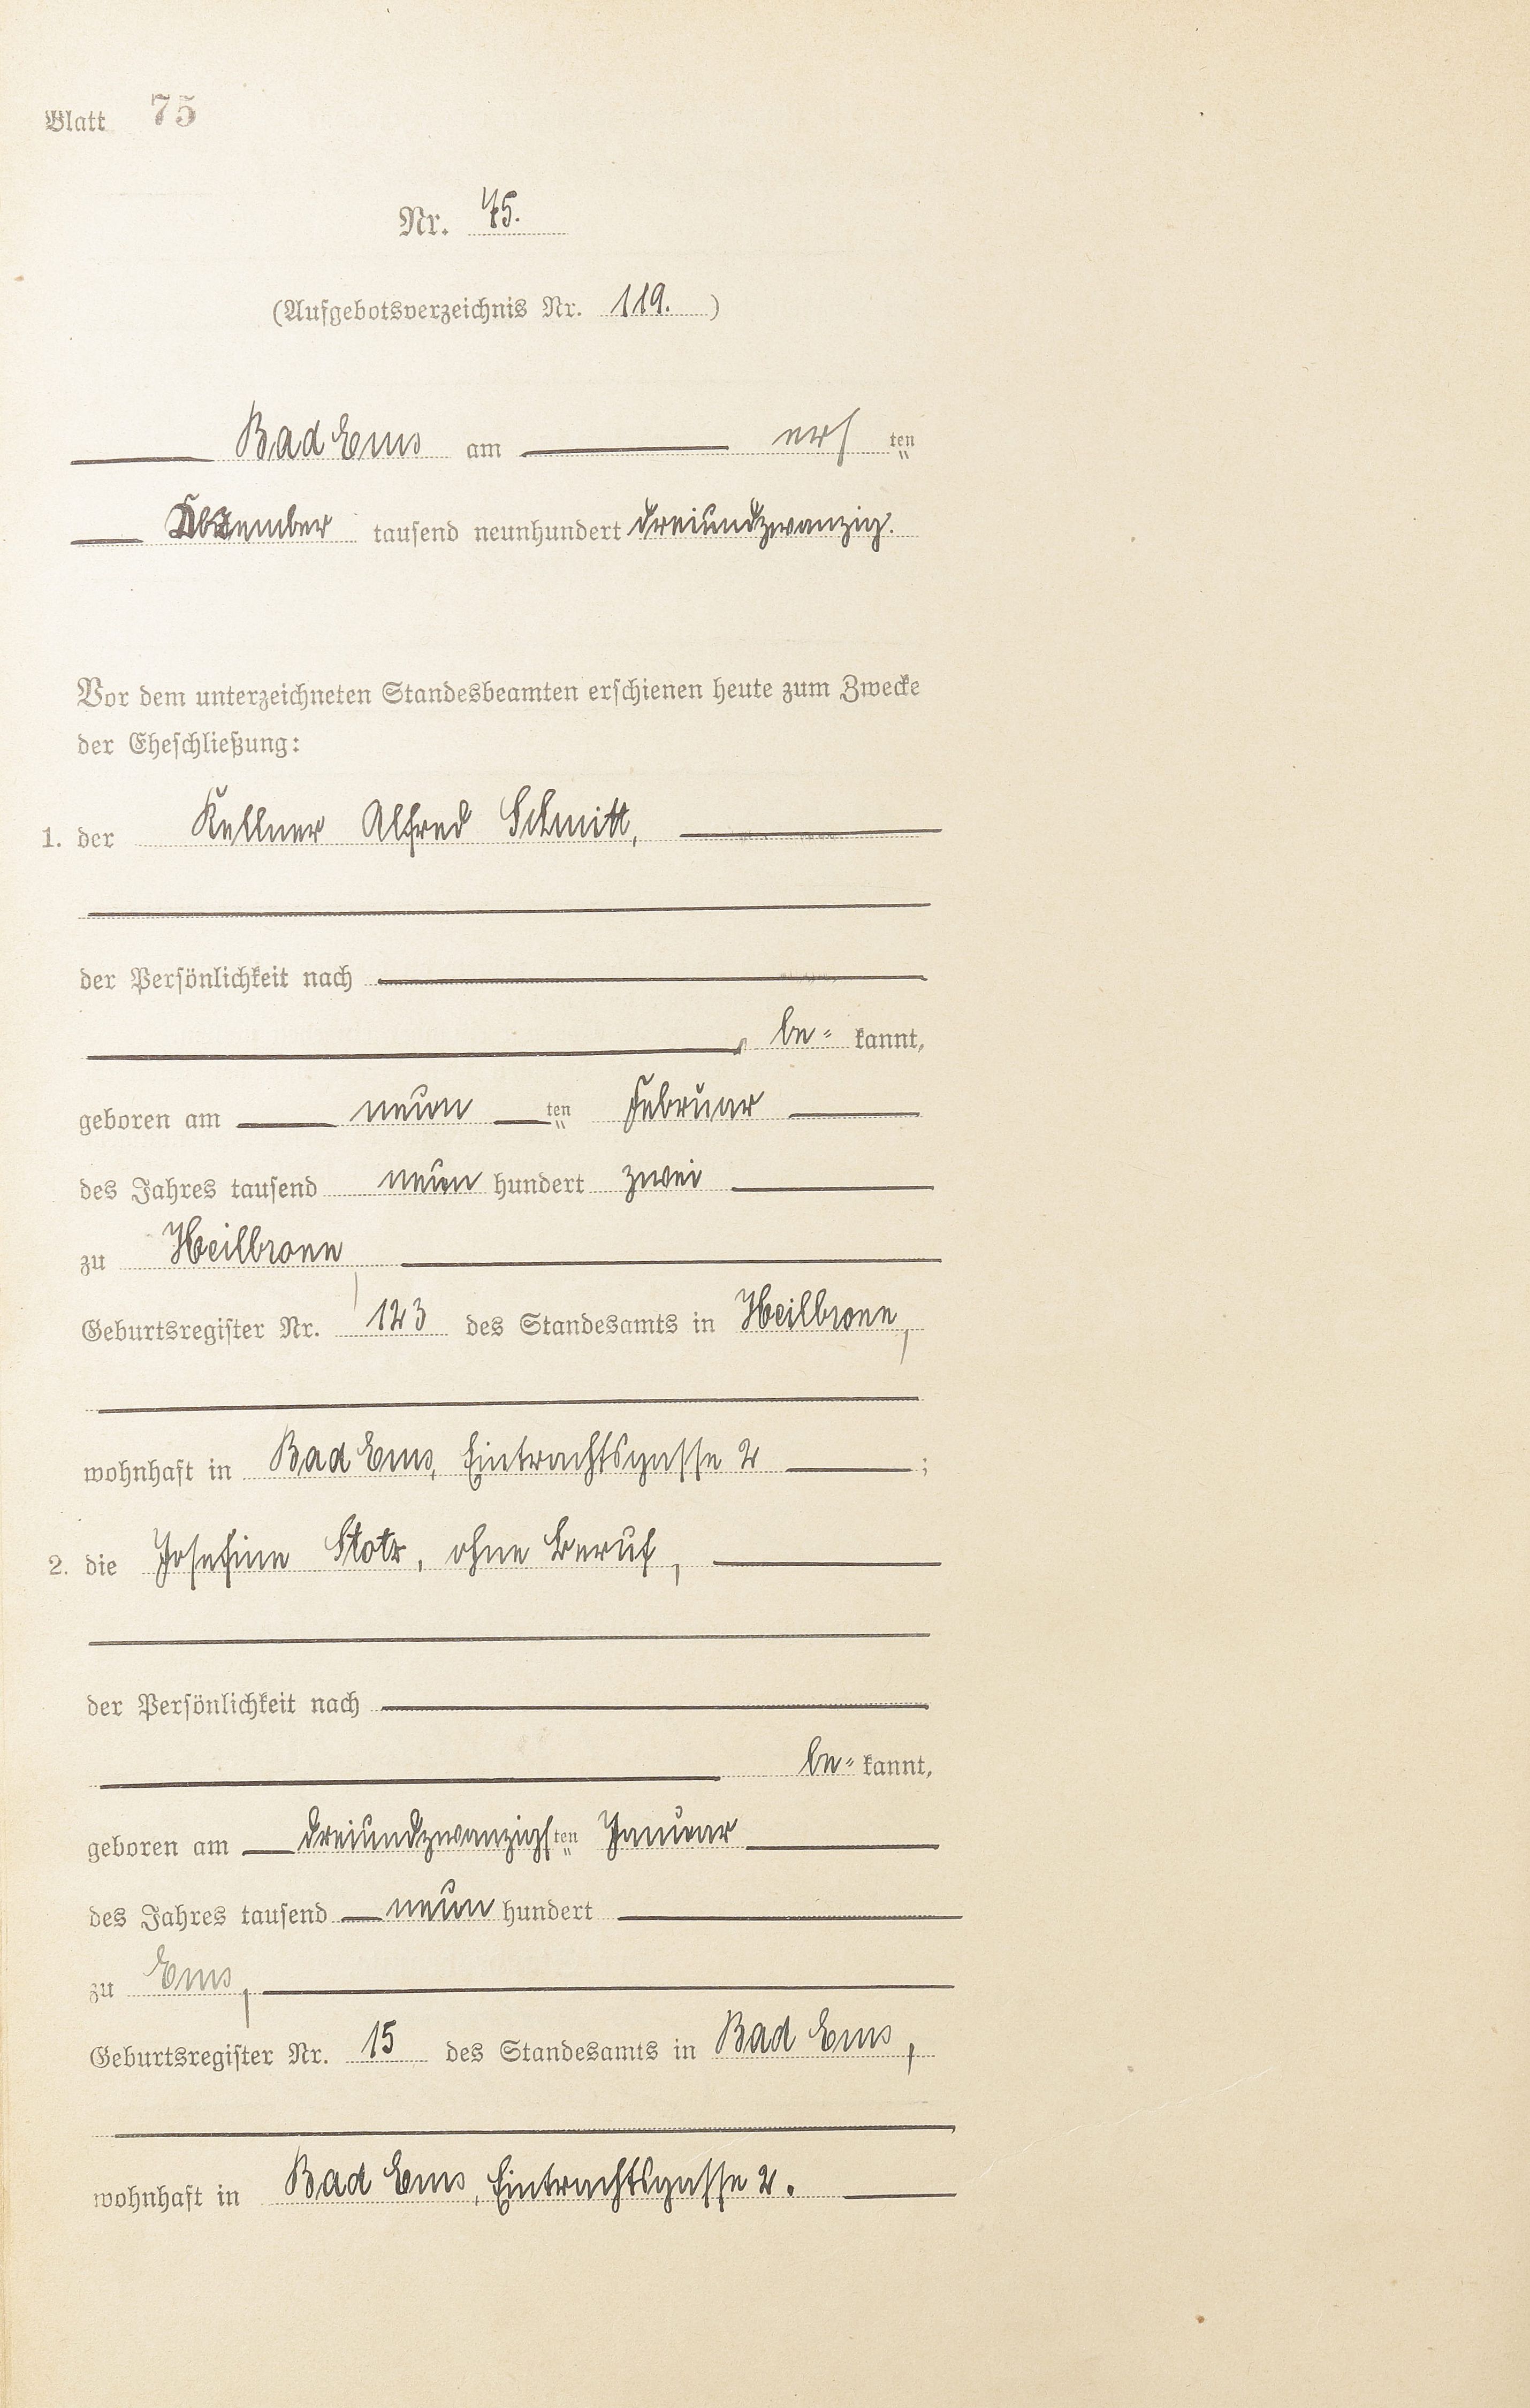 Blatt 75
Nr. 75.
(Aufgebotsverzeichnis Nr. 119.)
Bad Ems am ers ten
Dezember tausend neunhundert dreiundzwanzig.
Vor dem unterzeichneten Standesbeamten erschienen heute zum Zwecke
der Eheschließung:
1. der Kellner Alfred Schmitt,
der Persönlichkeit nach
be= kannt,
geboren am neun ten Februar
des Jahres tausend neun hundert zwei
zu Heilbronn,
Geburtsregister Nr. 123 des Standesamts in Heilbronn,
wohnhaft in Bad Ems, Eintrachtsgasse 2 ;
2. die Josefine Stotz, ohne Beruf,
der Persönlichkeit nach
be= kannt,
geboren am dreiundzwanzigs ten Januar
des Jahres tausend neun hundert
zu Ems,
Geburtsregister Nr. 15 des Standesamts in Bad Ems,
wohnhaft in Bad Ems, Eintrachtsgasse 2.